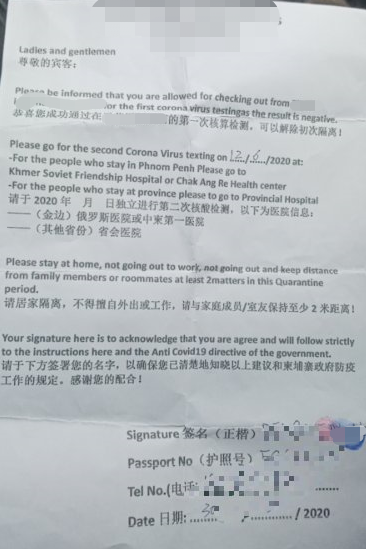 Ladies and gentlemen
尊敬的宾客：
Please be informed that you are allowed for checking out from
for the first corona virus testingas the result is negative.
恭喜您成功通过在 的第一次核算检测，可以解除初次隔离！
Please go for the second Corona Virus texting on 12/6/2020 at:
-For the people who stay in Phnom Penh Please go to
Khmer Soviet Friendship Hospital or Chak Ang Re Health center
-For the people who stay at province please go to Provincial Hospital
请于 2020 年 月 日独立进行第二次核酸检测，以下为医院信息：
——（金边）俄罗斯医院或中柬第一医院
——（其他省份）省会医院
Please stay at home, not going out to work, not going out and keep distance
from family members or roommates at least 2matters in this Quarantine
period.
请居家隔离，不得擅自外出或工作，请与家庭成员/室友保持至少 2 米距离！
Your signature here is to acknowledge that you are agree and will follow strictly
to the instructions here and the Anti Covid19 directive of the government.
请于下方签署您的名字，以确保您已清楚地知晓以上建议和柬埔寨政府防疫
工作的规定。感谢您的配合！
Signature 签名（正楷）
Passport No（护照号）
Tel No.(电话
Date 日期: 30 / 2020